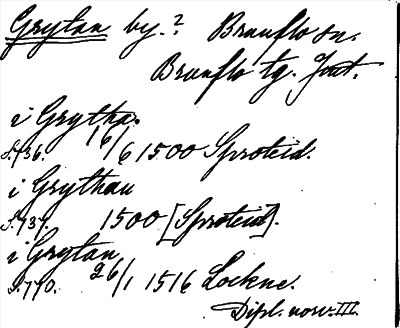 Grytan by.? Brunflo sn.
Brunflo tg. Jmt.
i Grytha
S. 736. 16/6 1500 Sproteid.
i Grythan
S. 737. 1500 [Sproteid].
i Grytan
S. 770. 26/1 1516 Lockne.
Dipl. norv. III.